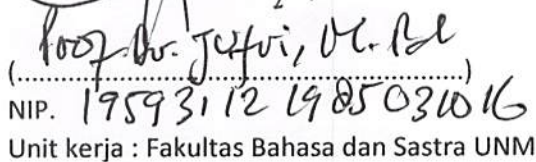 Prof. Dr. Jufri, M. Pd
(....................................................)
NIP. 19593112 198503 1016
Unit kerja : Fakultas Bahasa dan Sastra UNM